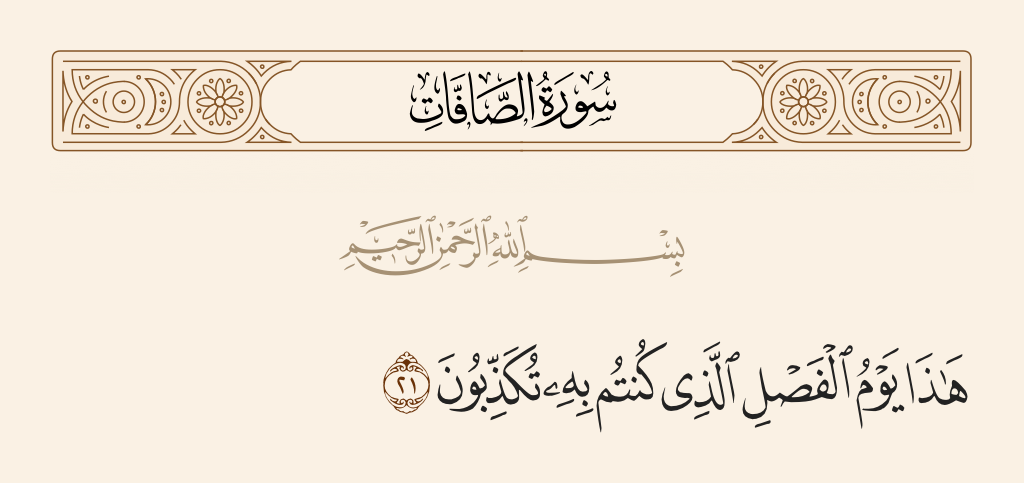 سُورَةُ الصَّافَّاتِ
بِسْمِ ٱللَّهِ ٱلرَّحْمَٰنِ ٱلرَّحِيمِ
هَٰذَا يَوْمُ ٱلْفَصْلِ ٱلَّذِى كُنتُم بِهِۦ تُكَذِّبُونَ ٢١